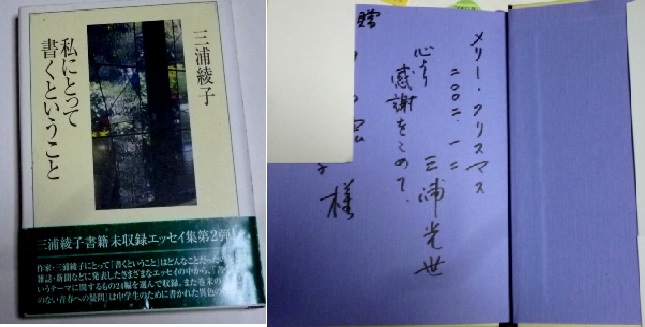 三浦綾子
私にとって
書くということ
三浦綾子書籍 未収録エッセイ集第2弾!
作家・三浦綾子にとって「書くということ」はどんなことだった
雑誌・新聞などに発表したさまざまなエッセイの中から、
いうテーマに関するもの24編を選んで収録。また巻末の
のない青春への疑問」は中学生のために書かれた異色の
メリー・クリスマス
二〇〇二.一二
心より
感謝をこめて、
三浦光世
贈
様